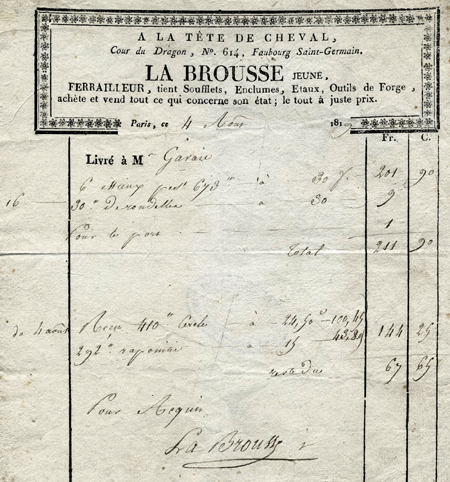 A LA TÊTE DE CHEVAL,
Cour du Dragon, No. 614, Faubourg Saint-Germain.
LA BROUSSE JEUNE,
FERRAILLEUR, tient Soufflets, Enclumes, Etaux, Outils de Forge,
achète et vend tout ce qui concerne son état; le tout à juste prix.
Paris, ce 4 Aout 18
Fr. C.
Livré à Mr
6 673 à 30 201 90
16 30 de rondelles à 30 9
Pour le port 1
Total 211 90
du 4 aout Reçu 410 Cercle à 24,50 100,45 144 25
292 à 15 43,80
reste due 67 65
Pour Acquit
La Brousse